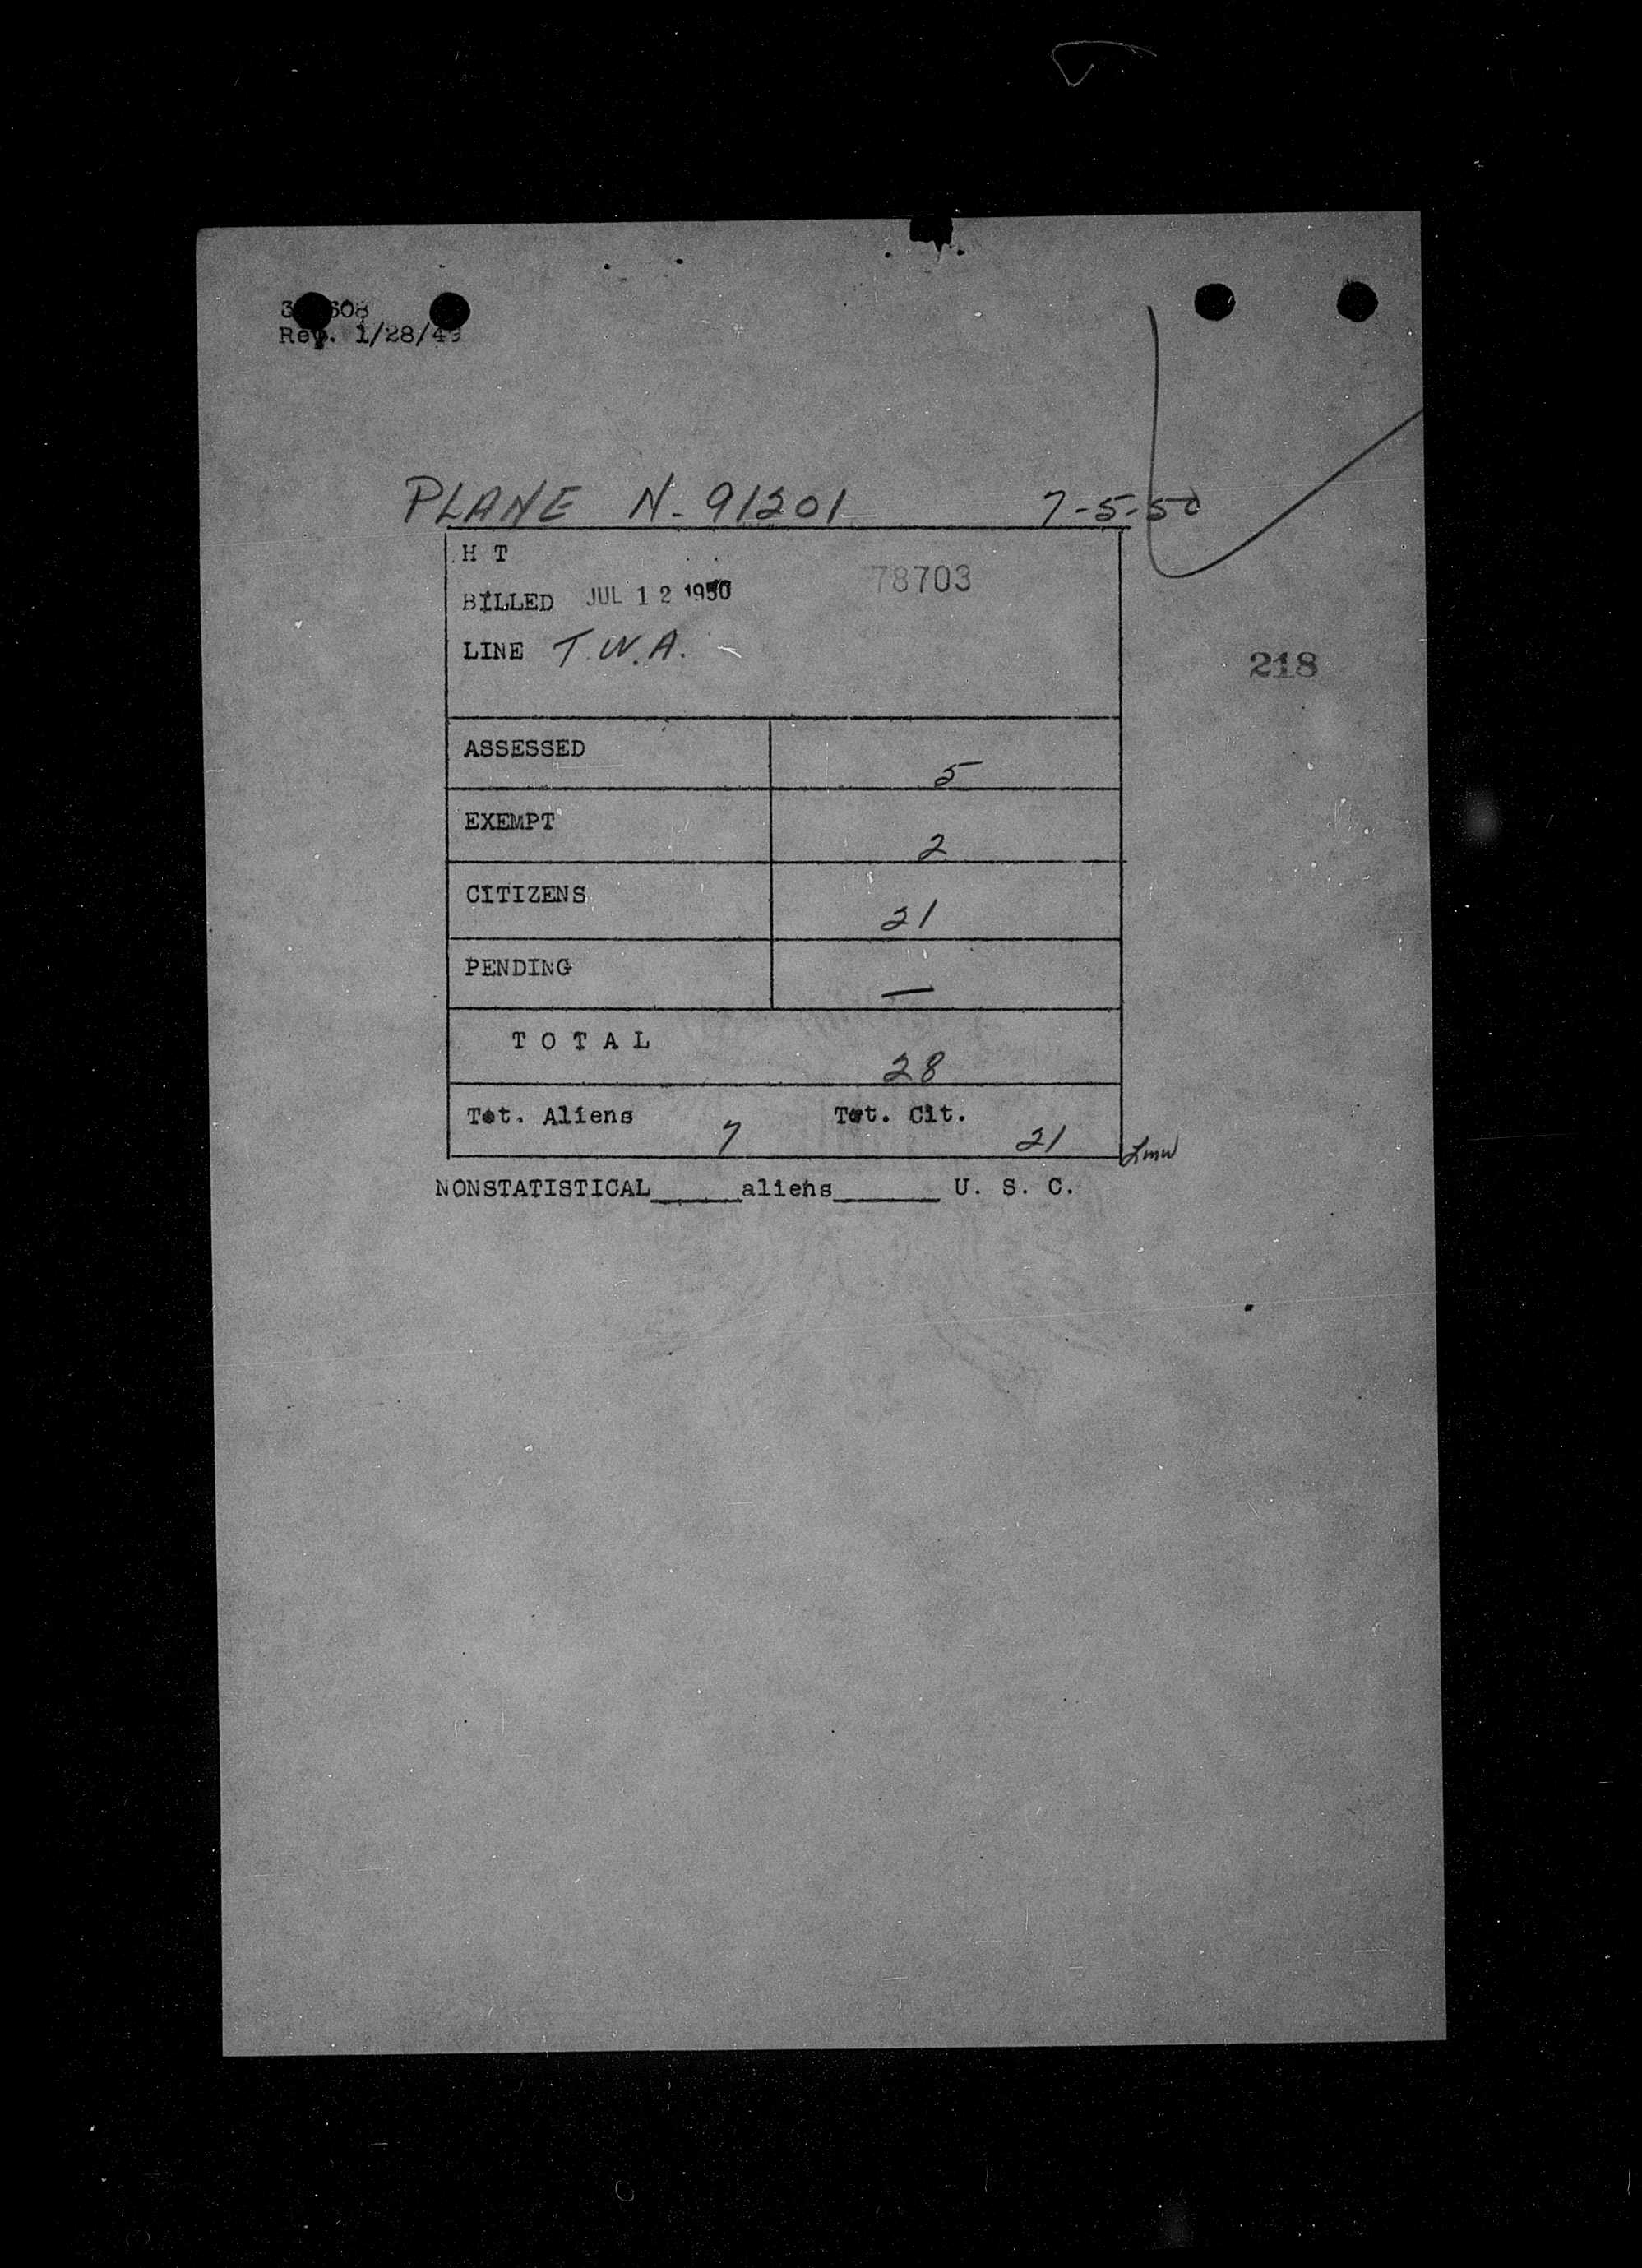 608
Rev. 1/28/49
PLANE N-91201 7-5-50
H T
78703
BILLED JUL 12 1950
LINE T.W.A.
218
ASSESSED 5
EXEMPT 2
CITIZENS 21
PENDING —
TOTAL 28
Tot. Aliens 7 Tot. Cit. 21
NONSTATISTICAL______aliens_______ U. S. C.